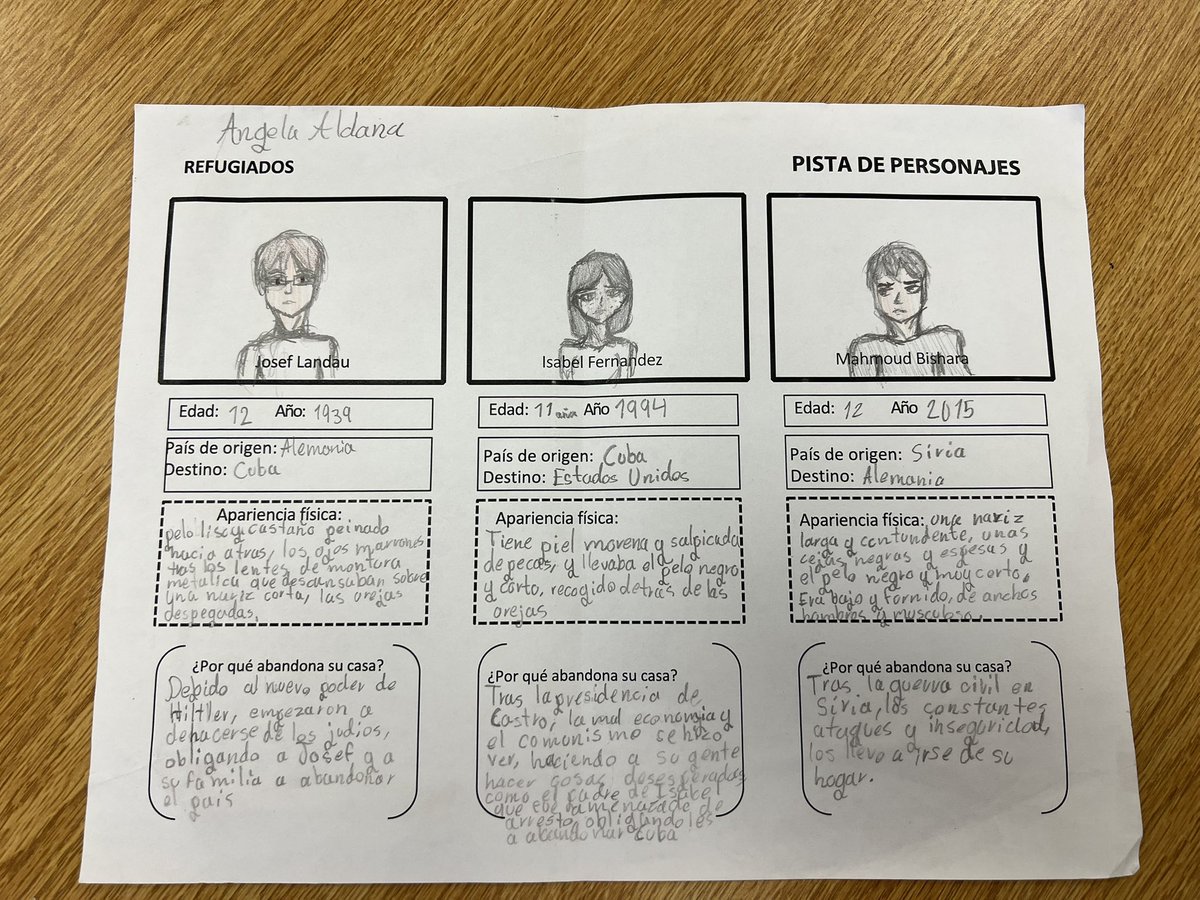 Angela Aldana
REFUGIADOS
PISTA DE PERSONAJES
Josef Landau
Edad: 12 Año: 1939
País de origen: Alemania
Destino: Cuba
Apariencia física:
pelo liso y castaño peinado
hacia atras, los ojos marrones
tras los lentes de montura
metalica que descansaban sobre
una nariz corta, las orejas
despegadas.
¿Por qué abandona su casa?
Debido al nuevo poder de
Hiltler, empezaron a
dehacerse de los judios,
obligando a Josef y a
su familia a abandonar
el país
Isabel Fernandez
Edad: 11 años Año 1994
País de origen: Cuba
Destino: Estados Unidos
Apariencia física:
Tiene piel morena y salpicada
de pecas, y llevaba el pelo negro
y corto, recogido detras de las
orejas
¿Por qué abandona su casa?
Tras la presidencia de
Castro, la mal economia y
el comunismo se hizo
ver, haciendo a su gente
hacer cosas desesperadas
como el padre de Isabel
que fue amenazado de
arresto, obligandoles
a abandonar Cuba
Mahmoud Bishara
Edad: 12 Año 2015
País de origen: Siria
Destino: Alemania
Apariencia física: una nariz
larga y contundente, unas
cejas negras y espesas y
el pelo negro y muy corto.
Era bajo y fornido, de anchos
hombros y musculoso.
¿Por qué abandona su casa?
Tras la guerra civil en
Siria, los constantes
ataques y inseguridad,
los llevo a irse de su
hogar.